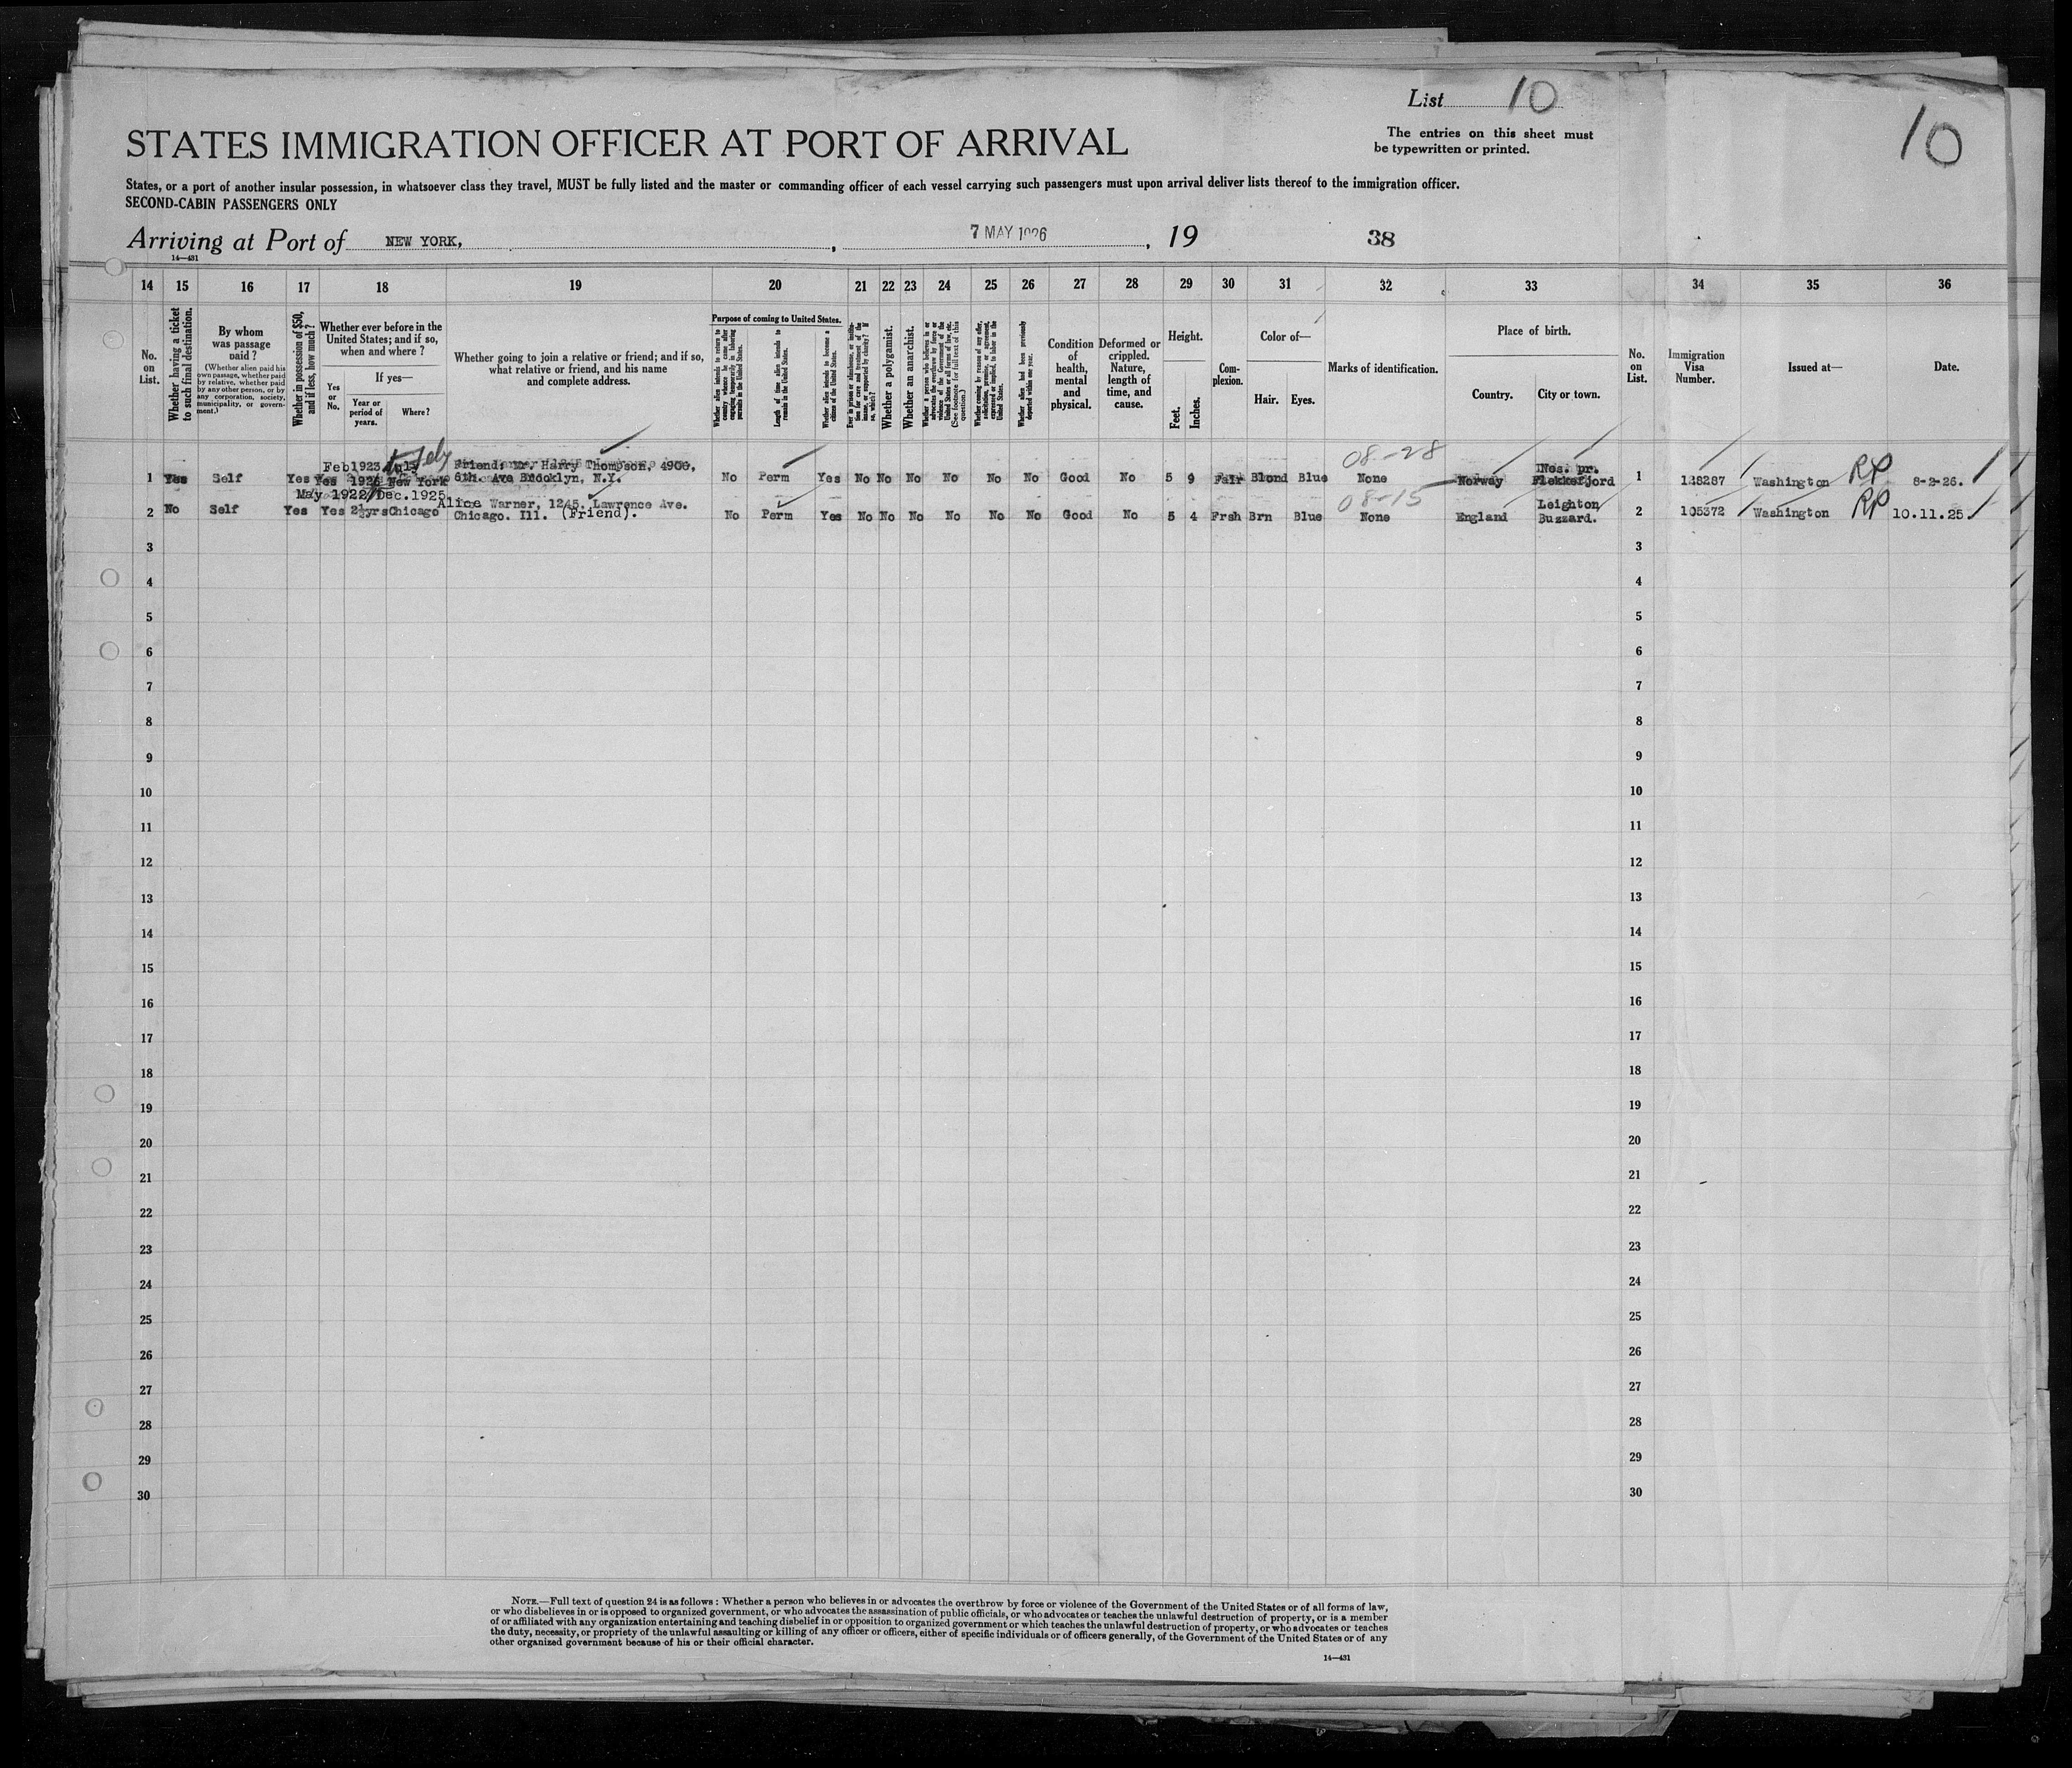 List 10
10
The entries on this sheet must
be typewritten or printed.
STATES IMMIGRATION OFFICER AT PORT OF ARRIVAL
States, or a port of another insular possession, in whatsoever class they travel, MUST be fully listed and the master or commanding officer of each vessel carrying such passengers must upon arrival deliver lists thereof to the immigration officer.
SECOND-CABIN PASSENGERS ONLY
Arriving at Port of NEW YORK, , 7 MAY 1926 , 19 38
14—431
14 15 16 17 18 19 20 21 22 23 24 25 26 27 28 29 30 31 32 33 34 35 36
No. on List.
Whether having a ticket to such final destination.
By whom was passage paid?
(Whether alien paid his own passage, whether paid by relative, whether paid by any other person, or by any corporation, society, municipality, or government.)
Whether in possession of $50, and if less, how much?
Whether ever before in the United States; and if so, when and where?
Yes or No.
If yes—
Year or period of years.
Where?
Whether going to join a relative or friend; and if so, what relative or friend, and his name and complete address.
Purpose of coming to United States.
Whether alien intends to return to country whence he came after engaging temporarily in laboring pursuits in the United States.
Length of time alien intends to remain in the United States.
Whether alien intends to become a citizen of the United States.
Ever in prison or almshouse, or institution for care and treatment of the insane, or supported by charity? If so, which?
Whether a polygamist.
Whether an anarchist.
Whether a person who believes in or advocates the overthrow by force or violence of the Government of the United States or all forms of law, etc. (See footnote for full text of this question.)
Whether coming by reason of any offer, solicitation, promise, or agreement, expressed or implied, to labor in the United States.
Whether alien had been previously deported within one year.
Condition of health, mental and physical.
Deformed or crippled. Nature, length of time, and cause.
Height.
Feet.
Inches.
Complexion.
Color of—
Hair.
Eyes.
Marks of identification.
Place of birth.
Country.
City or town.
No. on List.
Immigration Visa Number.
Issued at—
Date.
Feb 1923 July Friend: Mr. Harry Thompson, 4900, 08-28 Nes. pr.
1 Yes Self Yes Yes 1926 New York 6th. Ave Brooklyn, N.Y. No Perm Yes No No No No No No Good No 5 9 Fair Blond Blue None Norway Flekkefjord 1 128287 Washington RP 8-2-26.
May 1922/Dec. 1925 Alice Warner, 1245, Lawrence Ave. 08-15 Leighton
2 No Self Yes Yes 2½yrs Chicago Chicago. Ill. (Friend). No Perm Yes No No No No No No Good No 5 4 Frsh Brn Blue None England Buzzard. 2 105372 Washington RP 10.11.25.
3 3
4 4
5 5
6 6
7 7
8 8
9 9
10 10
11 11
12 12
13 13
14 14
15 15
16 16
17 17
18 18
19 19
20 20
21 21
22 22
23 23
24 24
25 25
26 26
27 27
28 28
29 29
30 30
NOTE.—Full text of question 24 is as follows: Whether a person who believes in or advocates the overthrow by force or violence of the Government of the United States or of all forms of law,
or who disbelieves in or is opposed to organized government, or who advocates the assassination of public officials, or who advocates or teaches the unlawful destruction of property, or is a member
of or affiliated with any organization entertaining and teaching disbelief in or opposition to organized government or which teaches the unlawful destruction of property, or who advocates or teaches
the duty, necessity, or propriety of the unlawful assaulting or killing of any officer or officers, either of specific individuals or of officers generally, of the Government of the United States or of any
other organized government because of his or their official character.
14—431